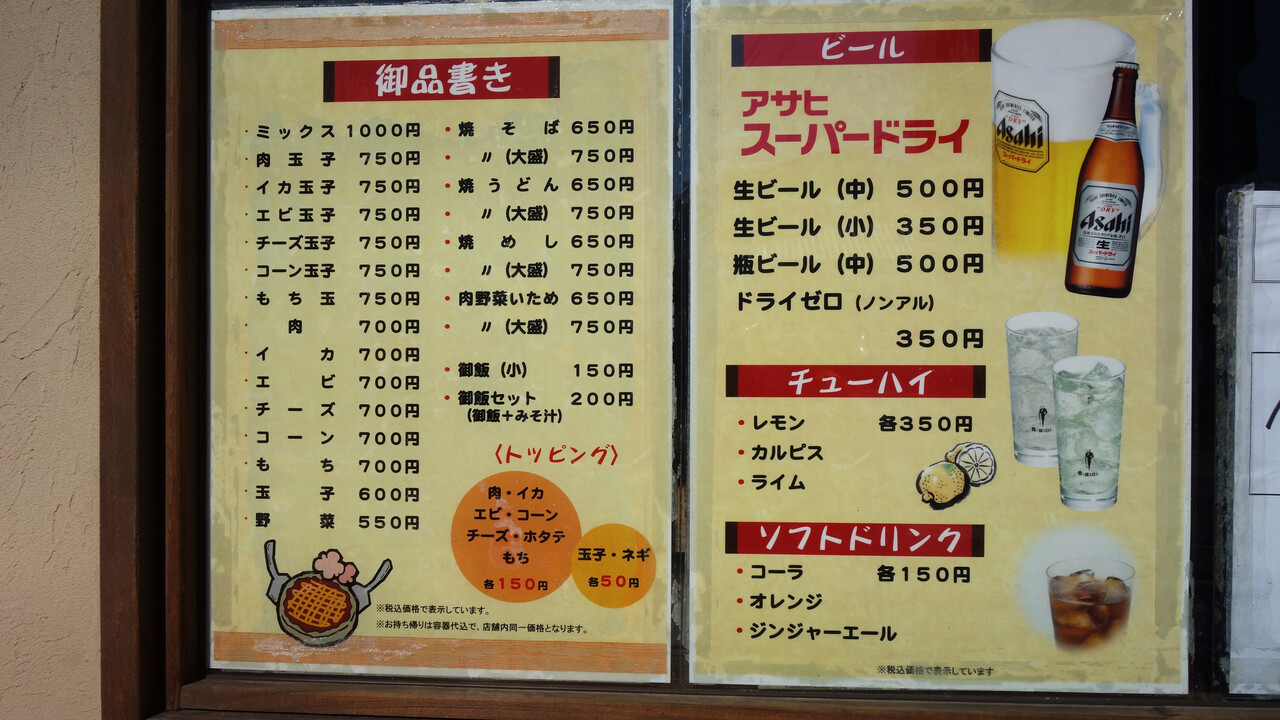 御品書き
・ミックス 1000円
・肉玉子 750円
・イカ玉子 750円
・エビ玉子 750円
・チーズ玉子 750円
・コーン玉子 750円
・もち玉 750円
・肉 700円
・イカ 700円
・エビ 700円
・チーズ 700円
・コーン 700円
・もち 700円
・玉子 600円
・野菜 550円
・焼そば 650円
・〃(大盛) 750円
・焼うどん 650円
・〃(大盛) 750円
・焼めし 650円
・〃(大盛) 750円
・肉野菜いため 650円
・〃(大盛) 750円
・御飯(小) 150円
・御飯セット 200円
(御飯+みそ汁)
〈トッピング〉
肉・イカ
エビ・コーン
チーズ・ホタテ
もち
各150円
玉子・ネギ
各50円
※税込価格で表示しています。
※お持ち帰りは容器代込で、店舗内同一価格となります。
ビール
アサヒ
スーパードライ
生ビール(中) 500円
生ビール(小) 350円
瓶ビール(中) 500円
ドライゼロ(ノンアル)
350円
Asahi
スーパードライ
Asahi
生
スーパードライ
チューハイ
・レモン 各350円
・カルピス
・ライム
ソフトドリンク
・コーラ 各150円
・オレンジ
・ジンジャーエール
※税込価格で表示しています